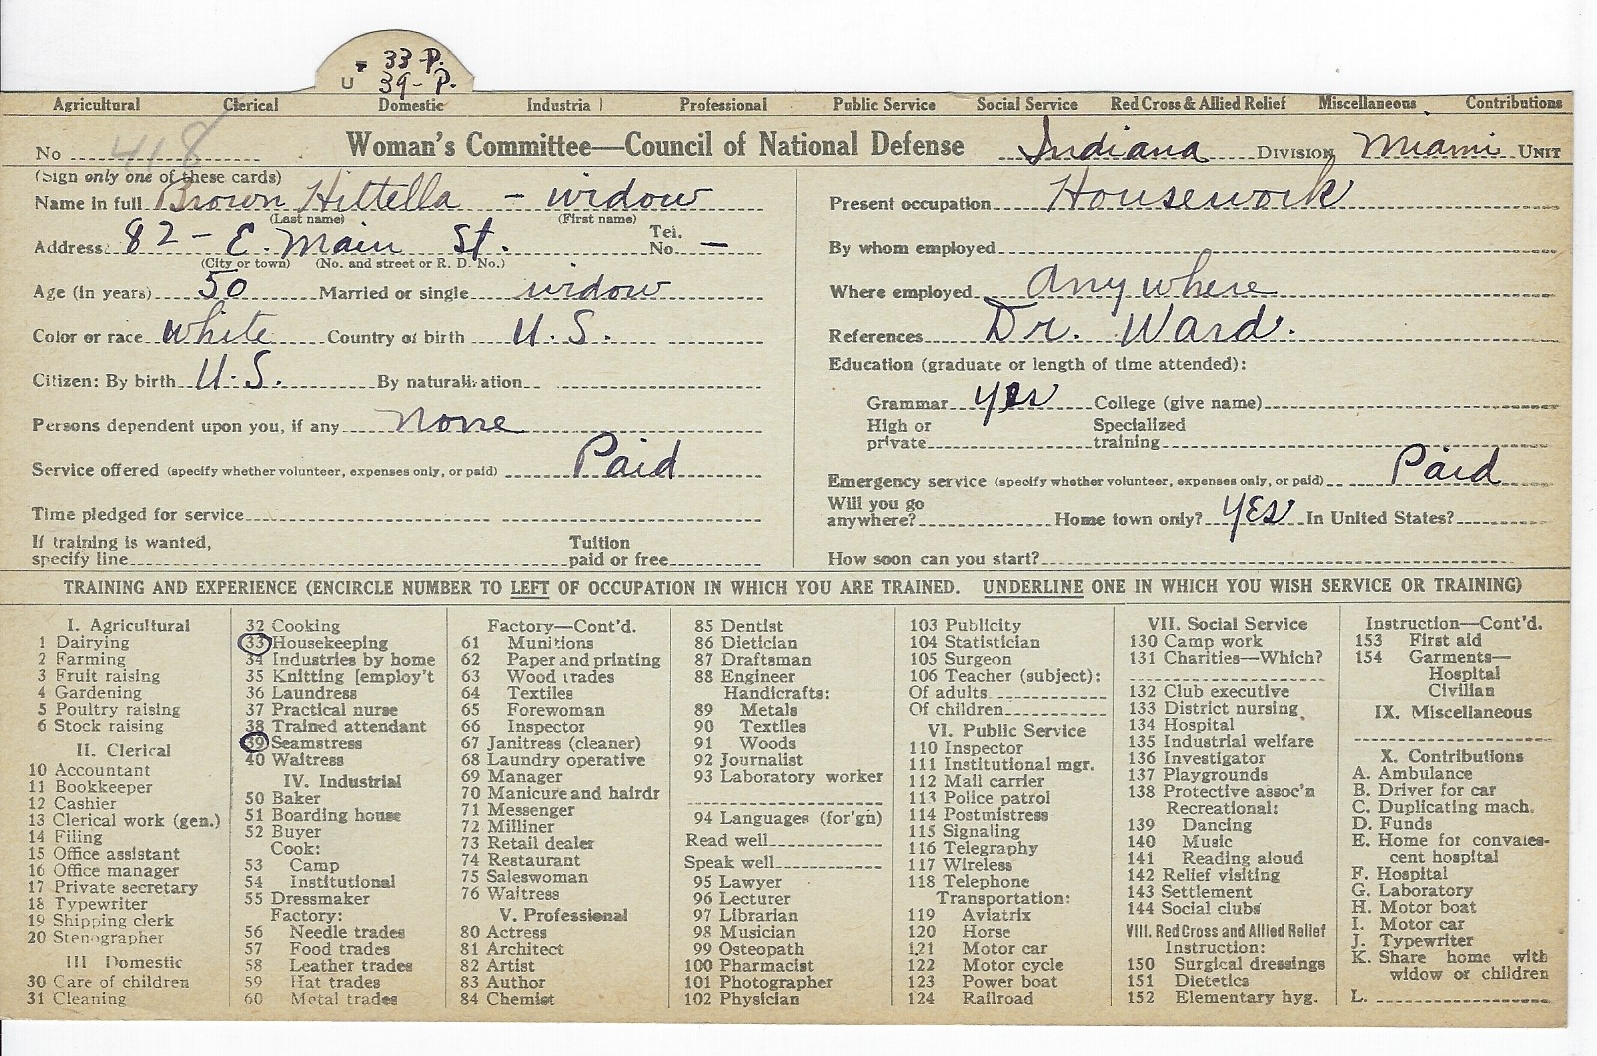 33-P.
U 39-P.
Agricultural Clerical Domestic Industrial Professional Public Service Social Service Red Cross & Allied Relief Miscellaneous Contributions
No 418 Woman's Committee—Council of National Defense Indiana DIVISION Miami UNIT
(Sign only one of these cards)
Name in full Brown Hittella - widow
(Last name) (First name)
Address: 82 - E. Main St. Tel. No. —
(City or town) (No. and street or R. D. No.)
Age (in years) 50 Married or single widow
Color or race white Country of birth U.S.
Citizen: By birth U.S. By naturalization
Persons dependent upon you, if any none
Service offered (specify whether volunteer, expenses only, or paid) Paid
Time pledged for service
If training is wanted, specify line Tuition paid or free
Present occupation Housework
By whom employed
Where employed anywhere
References Dr. Ward.
Education (graduate or length of time attended):
Grammar yes College (give name)
High or private Specialized training
Emergency service (specify whether volunteer, expenses only, or paid) Paid
Will you go anywhere? Home town only? YES In United States?
How soon can you start?
TRAINING AND EXPERIENCE (ENCIRCLE NUMBER TO LEFT OF OCCUPATION IN WHICH YOU ARE TRAINED. UNDERLINE ONE IN WHICH YOU WISH SERVICE OR TRAINING)
I. Agricultural
1 Dairying
2 Farming
3 Fruit raising
4 Gardening
5 Poultry raising
6 Stock raising
II. Clerical
10 Accountant
11 Bookkeeper
12 Cashier
13 Clerical work (gen.)
14 Filing
15 Office assistant
16 Office manager
17 Private secretary
18 Typewriter
19 Shipping clerk
20 Stenographer
III Domestic
30 Care of children
31 Cleaning
32 Cooking
33 Housekeeping
34 Industries by home
35 Knitting [employ't
36 Laundress
37 Practical nurse
38 Trained attendant
39 Seamstress
40 Waitress
IV. Industrial
50 Baker
51 Boarding house
52 Buyer
Cook:
53 Camp
54 Institutional
55 Dressmaker
Factory:
56 Needle trades
57 Food trades
58 Leather trades
59 Hat trades
60 Metal trades
Factory—Cont'd.
61 Munitions
62 Paper and printing
63 Wood trades
64 Textiles
65 Forewoman
66 Inspector
67 Janitress (cleaner)
68 Laundry operative
69 Manager
70 Manicure and hairdr
71 Messenger
72 Milliner
73 Retail dealer
74 Restaurant
75 Saleswoman
76 Waitress
V. Professional
80 Actress
81 Architect
82 Artist
83 Author
84 Chemist
85 Dentist
86 Dietician
87 Draftsman
88 Engineer
Handicrafts:
89 Metals
90 Textiles
91 Woods
92 Journalist
93 Laboratory worker
94 Languages (for'gn)
Read well
Speak well
95 Lawyer
96 Lecturer
97 Librarian
98 Musician
99 Osteopath
100 Pharmacist
101 Photographer
102 Physician
103 Publicity
104 Statistician
105 Surgeon
106 Teacher (subject):
Of adults
Of children
VI. Public Service
110 Inspector
111 Institutional mgr.
112 Mail carrier
113 Police patrol
114 Postmistress
115 Signaling
116 Telegraphy
117 Wireless
118 Telephone
Transportation:
119 Aviatrix
120 Horse
121 Motor car
122 Motor cycle
123 Power boat
124 Railroad
VII. Social Service
130 Camp work
131 Charities—Which?
132 Club executive
133 District nursing
134 Hospital
135 Industrial welfare
136 Investigator
137 Playgrounds
138 Protective assoc'n
Recreational:
139 Dancing
140 Music
141 Reading aloud
142 Relief visiting
143 Settlement
144 Social clubs
VIII. Red Cross and Allied Relief
Instruction:
150 Surgical dressings
151 Dietetics
152 Elementary hyg.
Instruction—Cont'd.
153 First aid
154 Garments—
Hospital
Civilian
IX. Miscellaneous
X. Contributions
A. Ambulance
B. Driver for car
C. Duplicating mach.
D. Funds
E. Home for convalescent hospital
F. Hospital
G. Laboratory
H. Motor boat
I. Motor car
J. Typewriter
K. Share home with
widow or children
L.